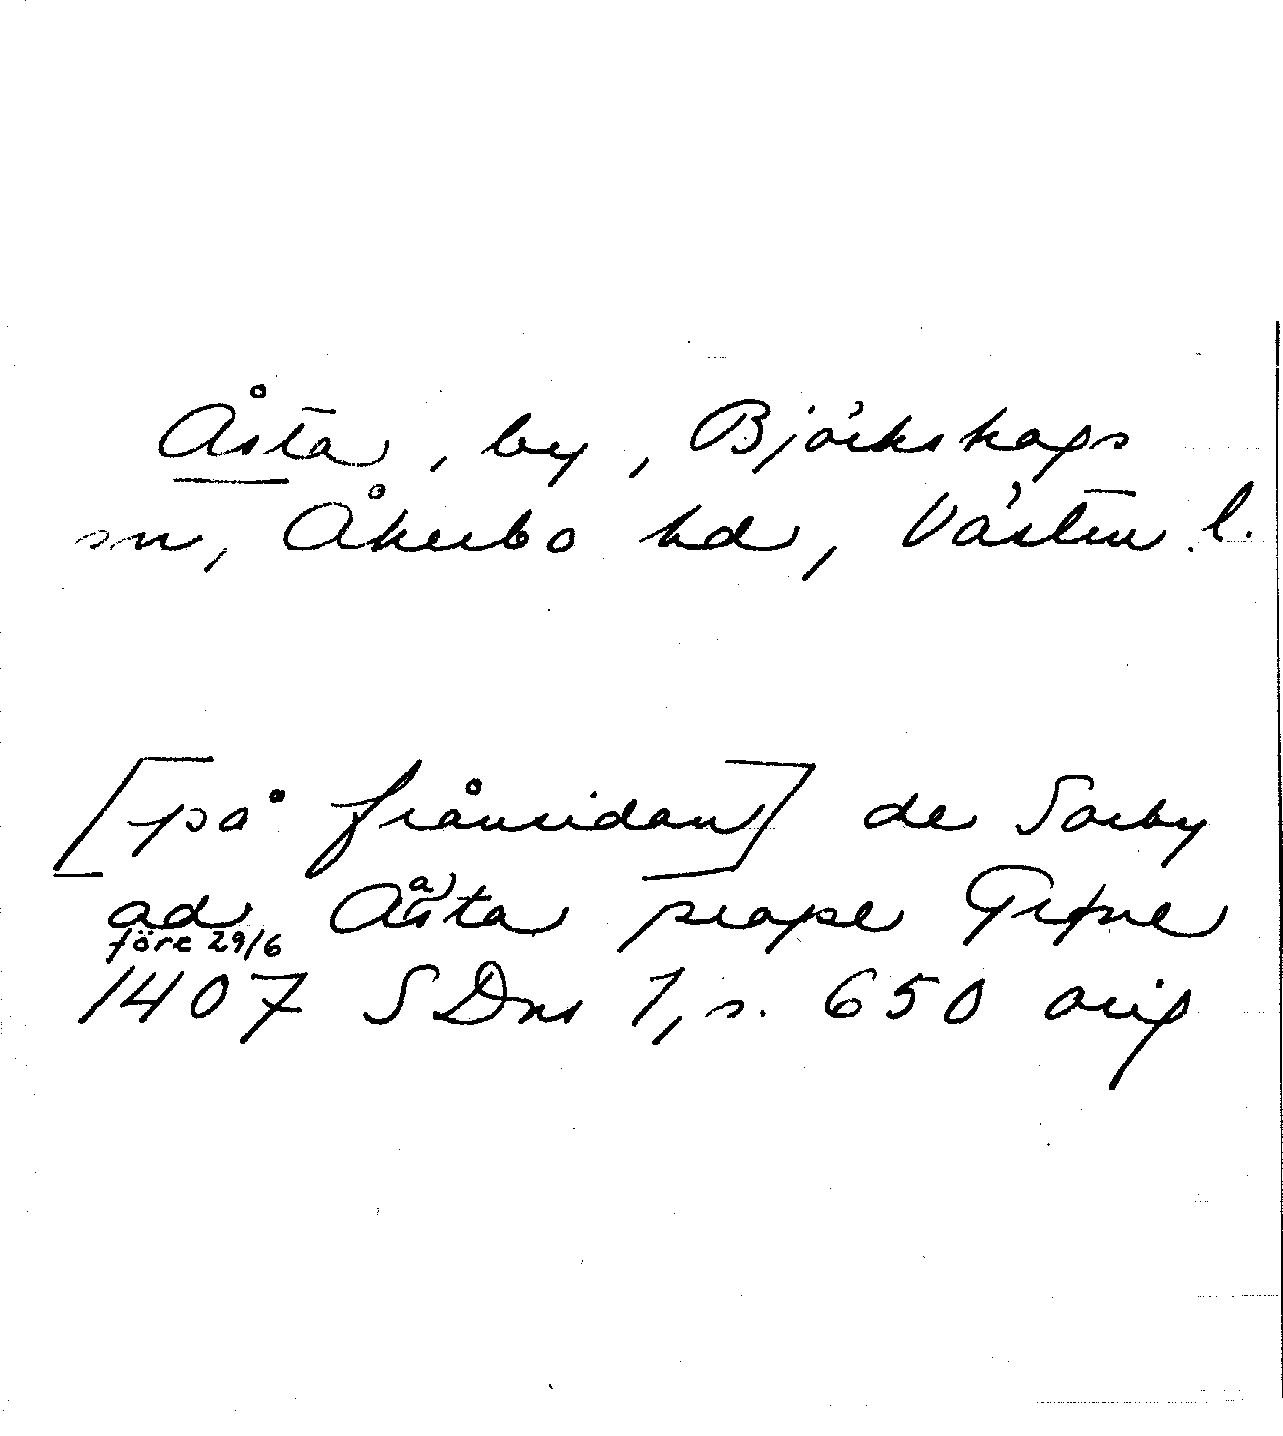 Åsta, by, Björkskogs
sn, Åkerbo hd, Västm. l.
[på frånsidan] de Sorby
ad Aasta prope
före 29/6
1407 SDns 1, s. 650 orig